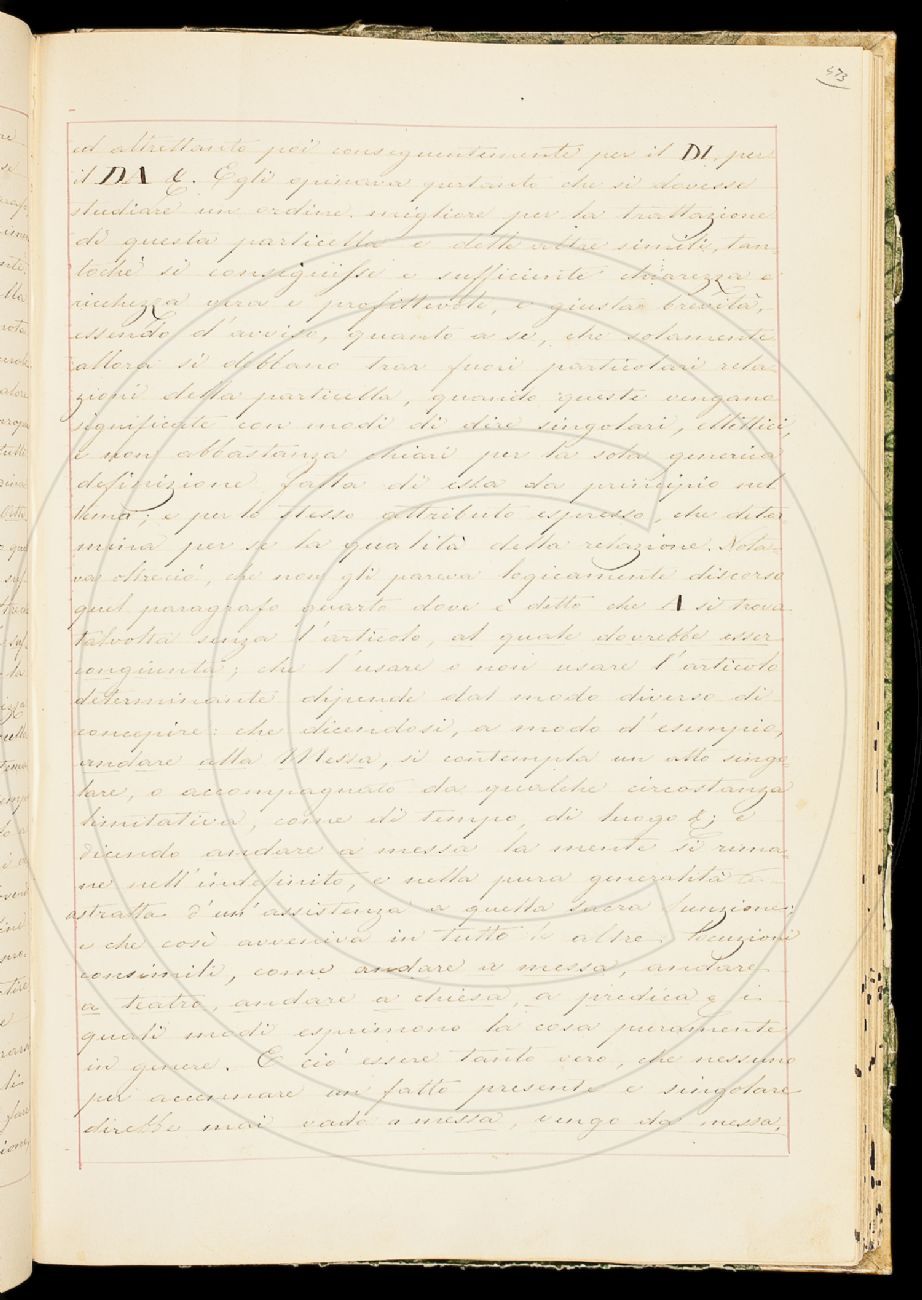 473
ed altrettanto poi conseguentemente per il DI, per
il DA &. Egli opinava pertanto che si dovesse
studiare un ordine migliore per la trattazione
di questa particella e delle altre simili, tan-
tochè si conseguisse e sufficiente chiarezza e
ricchezza vera e profittevole, e giusta brevità,
essendo d'avviso, quanto a se, che solamente
allora si debbano trar fuori particolari rela
zioni della particella, quando queste vengano
significate con modi di dire singolari, ellittici,
e non abbastanza chiari per la sola generica
definizione fatta di essa da principio nel
tema; e per lo stesso attributo espresso, che deter
mina per se la qualità della relazione. Nota-
va oltreciò, che non gli pareva logicamente discorso
quel paragrafo quarto dove è detto che A si trova
talvolta senza l'articolo, al quale dovrebbe esser
congiunta; che l'usare o non usare l'articolo
determinante dipende dal modo diverso di
concepire: che dicendosi, a modo d'esempio,
andare alla Messa, si contempla un atto singo-
lare, o accompagnato da qualche circostanza
limitativa, come di tempo, di luogo &; e
dicendo andare a messa la mente si rima-
ne nell'indefinito, e nella pura generalità
astratta d'un'assistenza a quella sacra funzione;
e che così avveniva in tutte le altre locuzioni
consimili, come andare a messa, andare
a teatro, andare a chiesa, a predica & i
quali modi esprimono la cosa puramente
in genere. E ciò essere tanto vero, che nessuno
per accennare un fatto presente e singolare
direbbe mai vado a messa, vengo da messa,